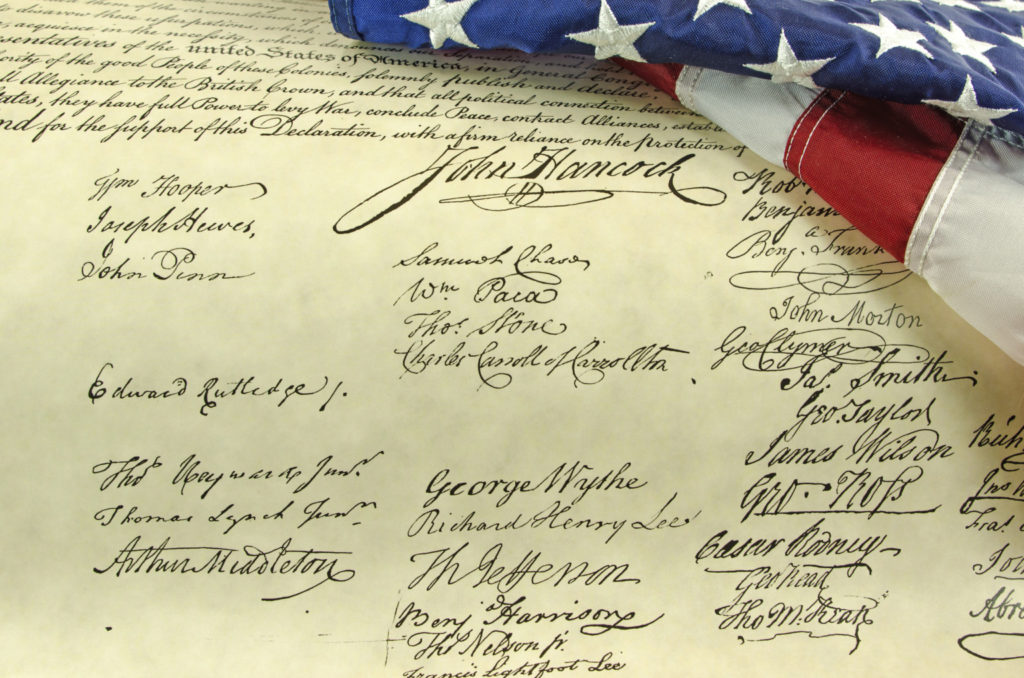 disavow these usurpations,
acquiesce in the necessity, which denounces our
sentatives of the united States of America, in General Cong
ority of the good People of these Colonies, solemnly publish and declare,
ll Allegiance to the British Crown, and that all political connection between
tates, they have full Power to levy War, conclude Peace, contract Alliances, establ
nd for the support of this Declaration, with a firm reliance on the protection of
John Hancock
Wm Hooper
Joseph Hewes,
John Penn
Edward Rutledge /.
Thos Heyward Junr.
Thomas Lynch Junr.
Arthur Middleton
Samuel Chase
Wm. Paca
Thos. Stone
Charles Carroll of Carrollton
George Wythe
Richard Henry Lee
Th Jefferson
Benja Harrison
Thos Nelson jr.
Francis Lightfoot Lee
Robt
Benjam
Benja. Frank
John Morton
Geo Clymer
Jas. Smith.
Geo. Taylor
James Wilson
Geo. Ross
Caesar Rodney
Geo Read
Tho M:Kean
Richd
Jns
Fras.
Joh
Abra